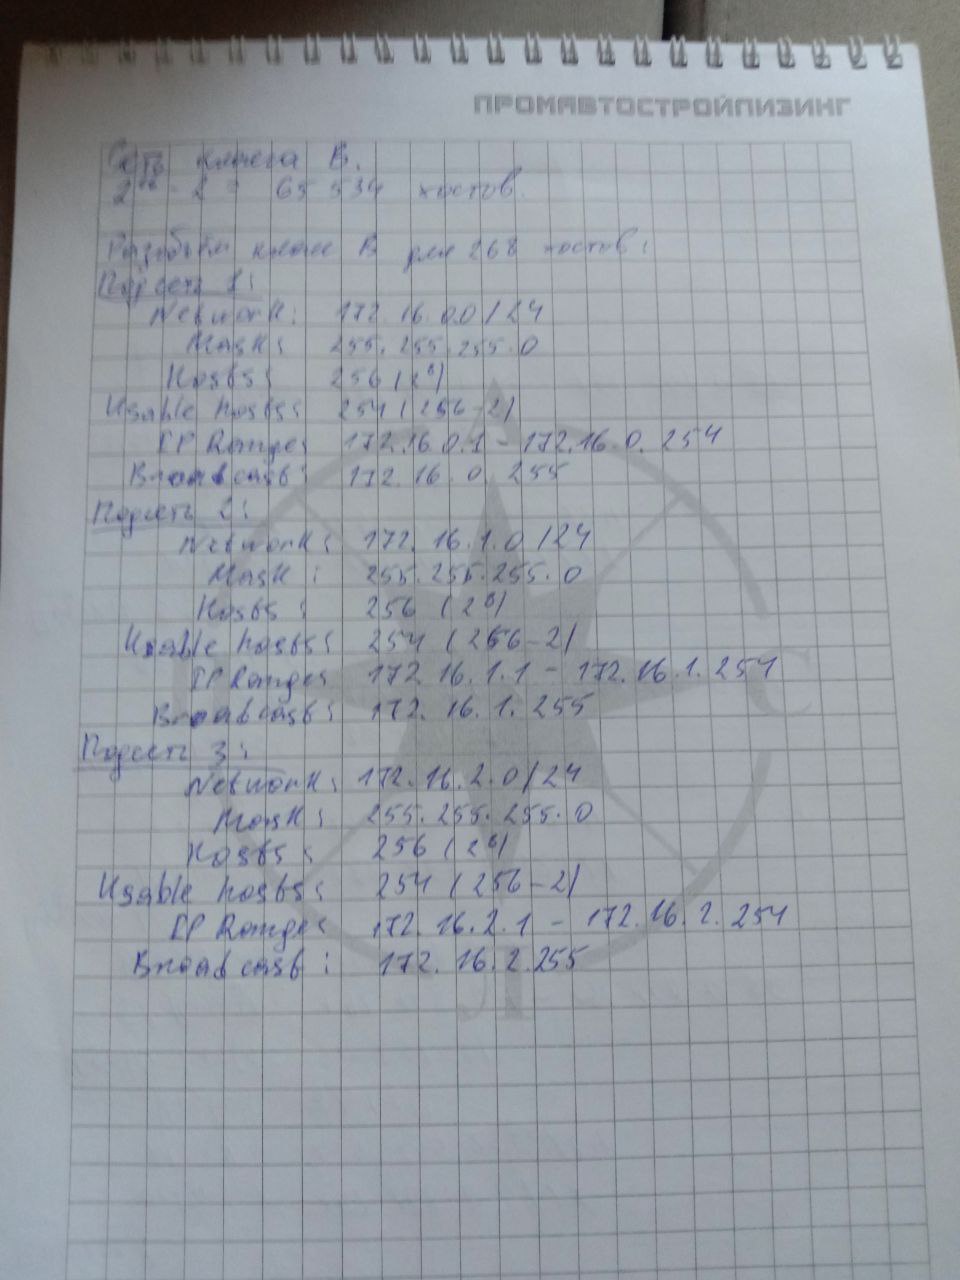 ПРОМАВТОСТРОЙЛИЗИНГ
Сеть класса B.
2¹⁶ - 2 = 65 534 хостов.
Разобьём класс B для 268 хостов:
Подсеть 1:
Network: 172.16.0.0/24
Mask: 255.255.255.0
Hosts: 256 (2⁸)
Usable hosts: 254 (256-2)
IP Range: 172.16.0.1 - 172.16.0.254
Broadcast: 172.16.0.255
Подсеть 2:
Network: 172.16.1.0/24
Mask: 255.255.255.0
Hosts: 256 (2⁸)
Usable hosts: 254 (256-2)
IP Range: 172.16.1.1 - 172.16.1.254
Broadcast: 172.16.1.255
Подсеть 3:
Network: 172.16.2.0/24
Mask: 255.255.255.0
Hosts: 256 (2⁸)
Usable hosts: 254 (256-2)
IP Range: 172.16.2.1 - 172.16.2.254
Broadcast: 172.16.2.255